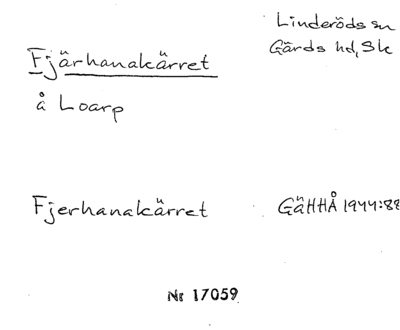 Linderöds sn
Gärds hd, Sk
Fjärhanakärret
å Loarp
Fjerhanakärret GäHHÅ 1944:88
Nr 17059